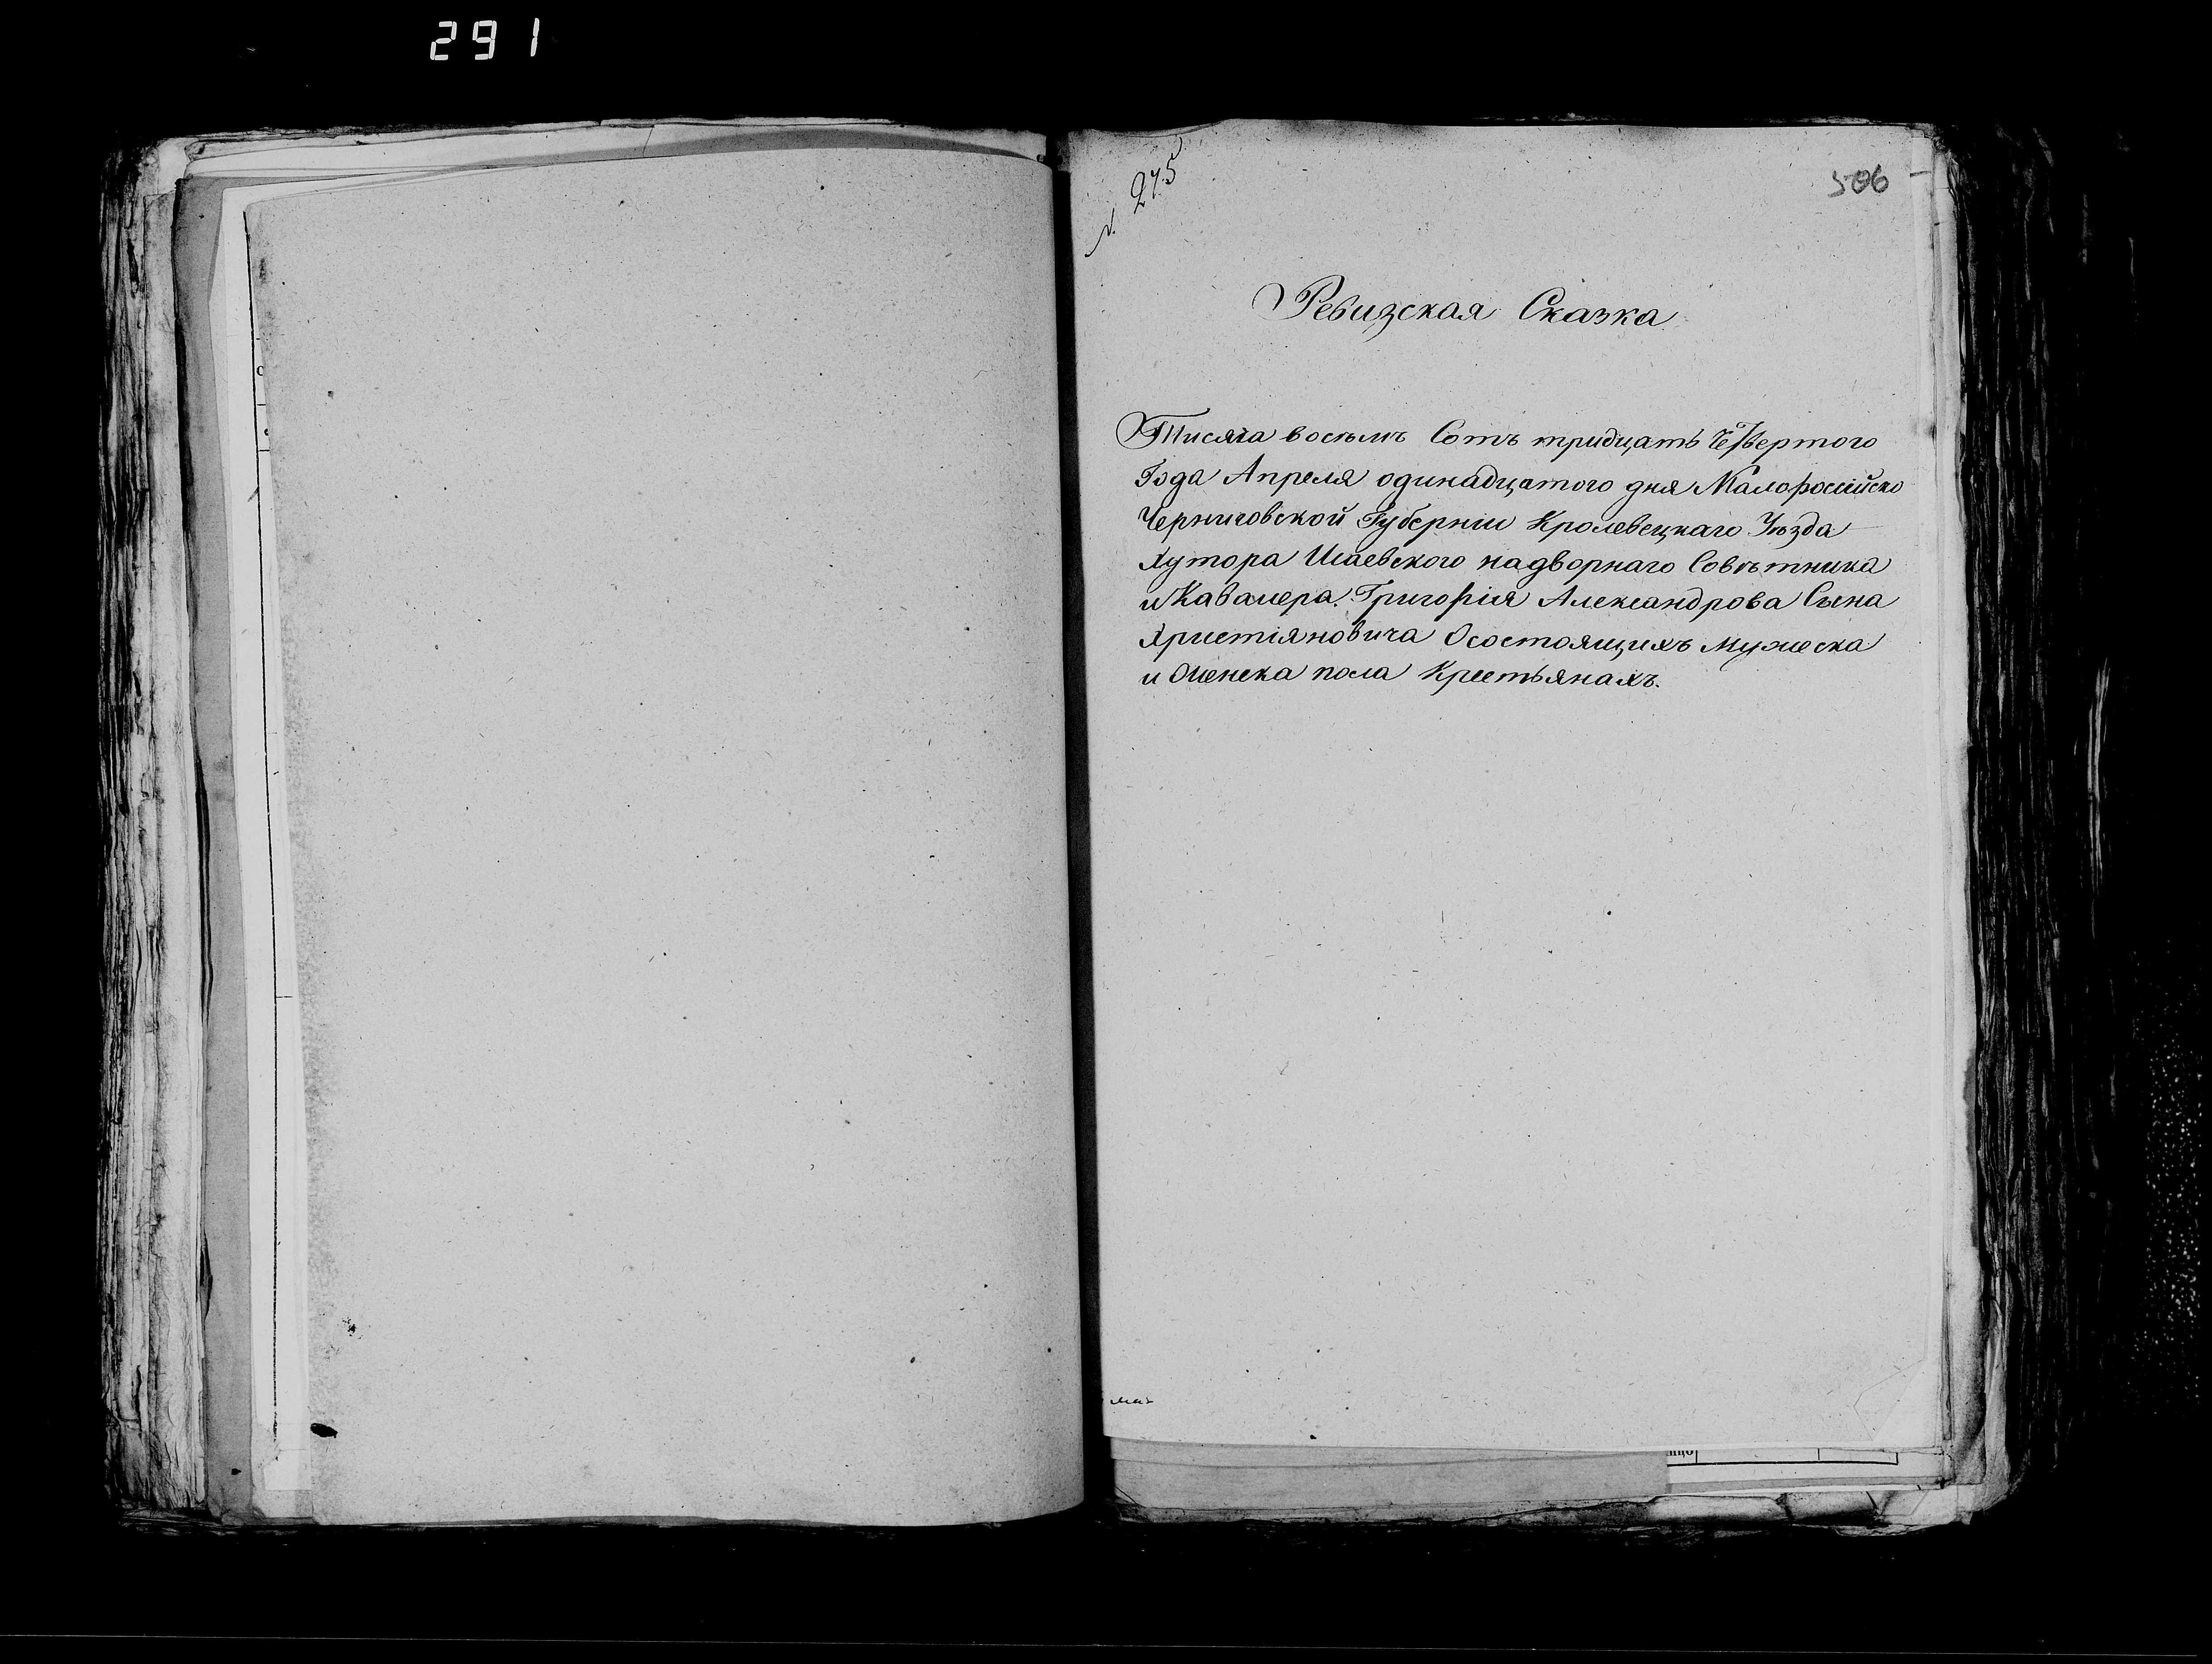 291
№ 275
506
Ревизская Сказка
Тисяча восемъ Сотъ тридцать Четвертого
Года Апреля одинадцатого дня Малоросийско
Черниговской Губерніи Кролевецкаго Уѣзда
Хутора Исаевского надворнаго Совѣтника
и Кавалера. Григорія Александрова Сына
Христіяновича Осостоящихъ мужеска
и женска пола Крестьянахъ.